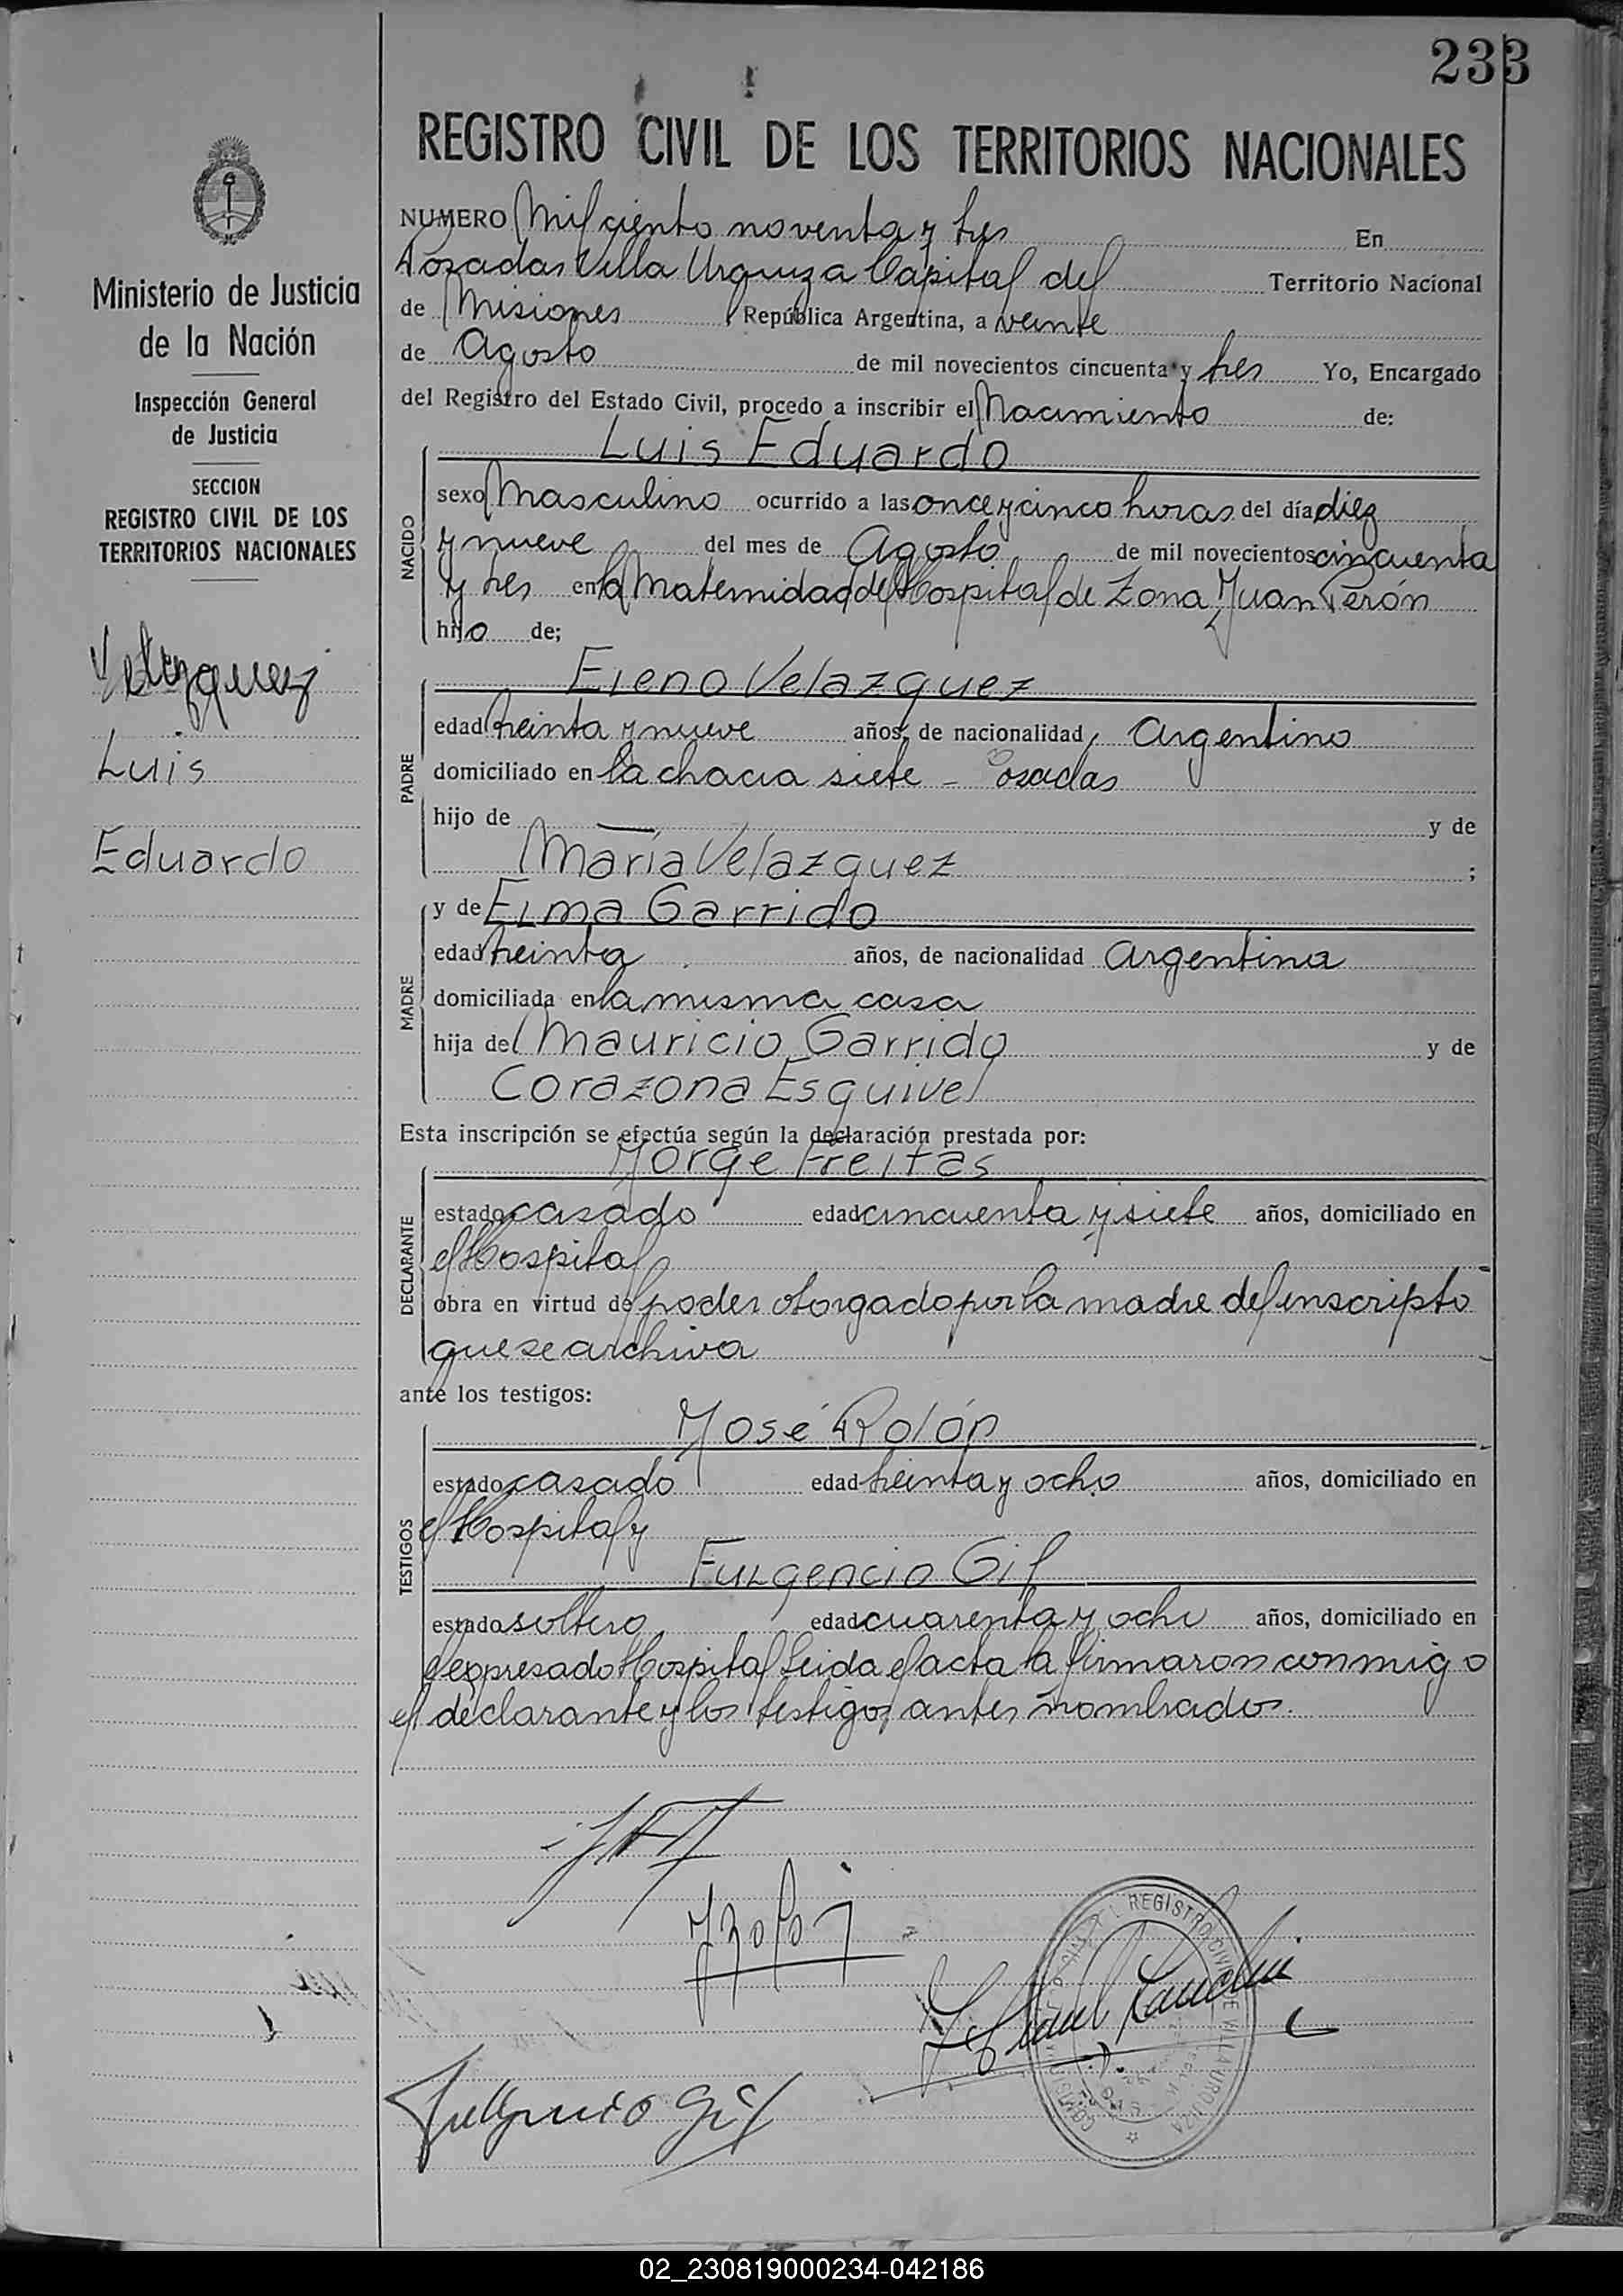 233
REGISTRO CIVIL DE LOS TERRITORIOS NACIONALES
Ministerio de Justicia
de la Nación
Inspección General
de Justicia
SECCION
REGISTRO CIVIL DE LOS
TERRITORIOS NACIONALES
Velazquez
Luis
Eduardo
NUMERO Mil ciento noventa y tres En
Posadas Villa Urquiza Capital del Territorio Nacional
de Misiones República Argentina, a veinte
de Agosto de mil novecientos cincuenta y tres Yo, Encargado
del Registro del Estado Civil, procedo a inscribir el Nacimiento de:
NACIDO
Luis Eduardo
sexo Masculino ocurrido a las once y cinco horas del día diez
y nueve del mes de Agosto de mil novecientos cincuenta
y tres en la Maternidad del Hospital de Zona Juan Perón
hijo de;
PADRE
Eleno Velazquez
edad treinta y nueve años, de nacionalidad Argentino
domiciliado en la chacra siete - Posadas
hijo de — y de
María Velazquez ;
MADRE
y de Elma Garrido
edad treinta años, de nacionalidad Argentina
domiciliada en la misma casa
hija de Mauricio Garrido y de
Corazona Esquivel
Esta inscripción se efectúa según la declaración prestada por:
DECLARANTE
Jorge Freitas
estado casado edad cincuenta y siete años, domiciliado en
el Hospital
obra en virtud del poder otorgado por la madre del inscripto
que se archiva
ante los testigos:
TESTIGOS
José Rolón
estado casado edad treinta y ocho años, domiciliado en
el Hospital y
Fulgencio Gil
estado soltero edad cuarenta y ocho años, domiciliado en
el expresado Hospital Leida el acta la firmaron conmigo
el declarante y los testigos antes nombrados.
JRolón
REGISTRO CIVIL DE VILLA URQUIZA
Fulgencio Gil
02_230819000234-042186